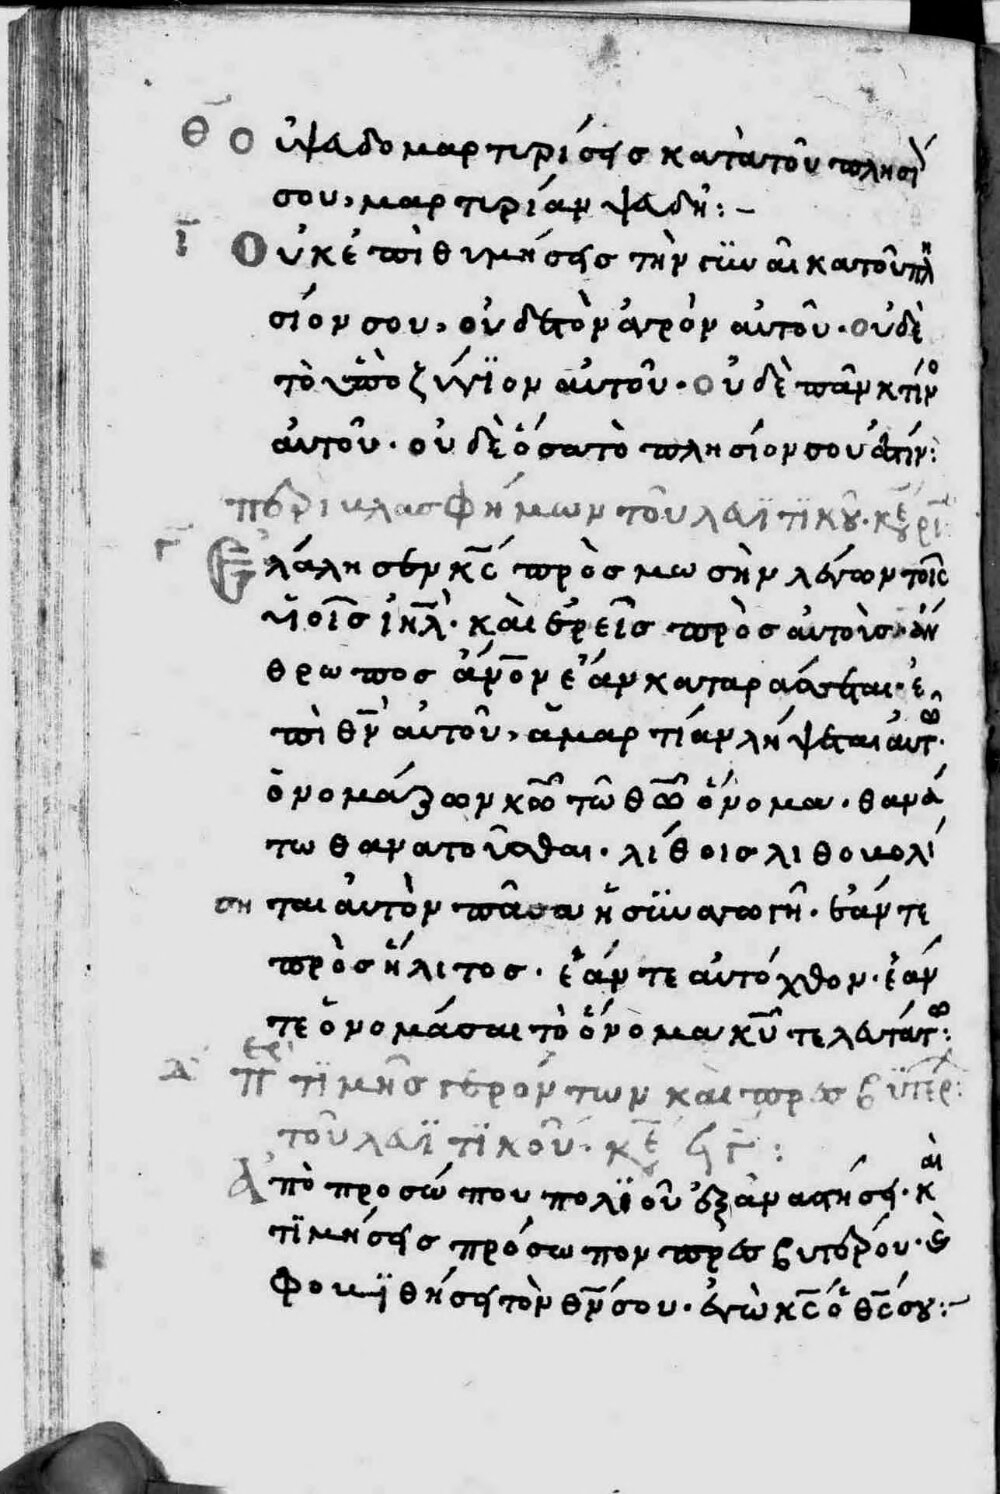 θ Ου ψαδομαρτιρίσεις κατατοῦ πλησί
σου, μαρτιρίαν ψαδῆ:-
ῑ Οὐκ ἐπιθιμήσεις τὴν γϋναῖκα τοῦ πλη
σίον σου, οὐδὲ τὸν ἀγρὸν αὐτοῦ. οὐδὲ
τὸ ὑποζύγϊον αὐτοῦ. οὐδὲ πᾶν κτίνο
αὐτοῦ. οὐδὲ ὅσα τὸ πλησίον σου ἐστίν:
περὶ βλασφήμων τοῦ λεϋϊτϊκοῦ. κε
γ Ἐλάλησεν κ̅ς̅ πρὸς μωσὴν λέγων τοῖς
υἱοῖς ι̅η̅λ̅. καὶ ἐρεῖς πρὸς αὐτοὺς. ἄν
θρωπος ἄν̅ο̅ν ἐὰν καταράσεται. ἐ
πὶ θ̅ν̅ αὐτοῦ, ἁμαρτίαν λήψεται αὐτ.
ὀνομάζων κ̅ω̅ τῶ θ̅ω̅ ὄνομα. θανά
τω θανατοῦσθαι. λίθοις λιθοβολί
ση ται αὐτὸν πᾶσα ἡ σϋναγωγῆ. ἐάν τε
προσήλιτος. ἐάν τε αὐτόχθον. ἐάν
τε ὀνομάσαι τὸ ὄνομα κ̅υ̅ τελευτάτω:
δ περὶ τϊμῆς γερόντων καὶ πρεσβϋτέρ:
τοῦ λεϋϊτϊκοῦ. κε ιγ:
Ἀπὸ προσώπου πολϊοῦ ἐξαναστήση. καὶ
τϊμήσεις πρόσωπον πρεσβυτέρου. καὶ
φοβϊθήσει τὸν θ̅ν̅ σου. ἐγὼ κ̅ς̅ ὁ θ̅ς̅ σου:-